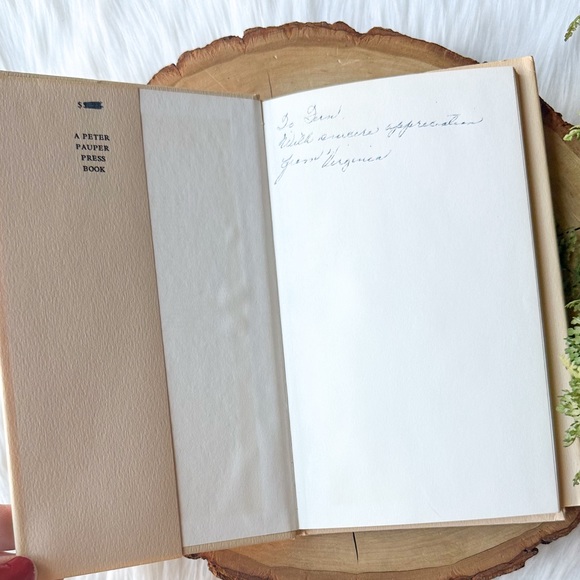 $
A PETER
PAUPER
PRESS
BOOK
To
With sincere appreciation
from Virginia